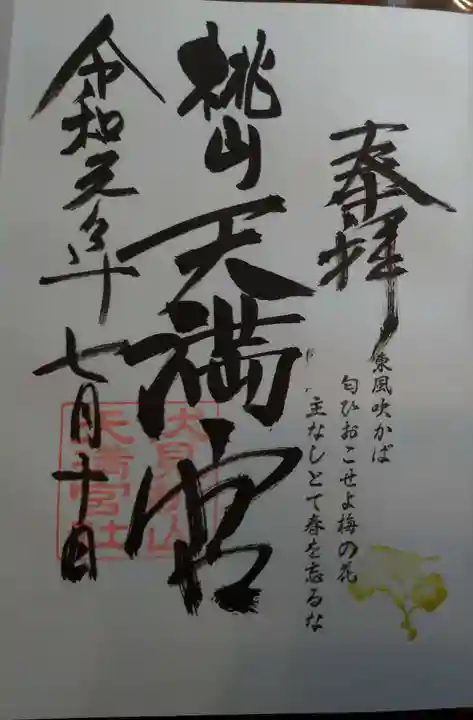 奉拝
東風吹かば
匂ひおこせよ梅の花
主なしとて春を忘るな
桃山
天満宮
令和元年
七月十日